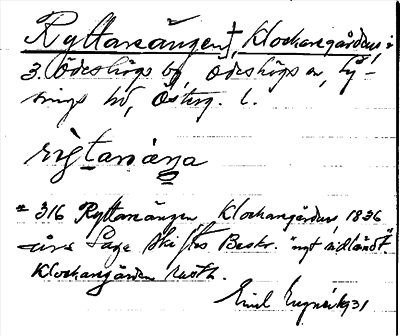 Ryttareängen†, Klockaregården, i
3. Ödeshögs by, Ödeshögs sn, Ly-
sings hd, Österg. l.
rigtaräŋa
316 Ryttareängen Klockaregården, 1836
års Laga Skiftes Beskr. "nytt
Klockaregården
Emil 1931